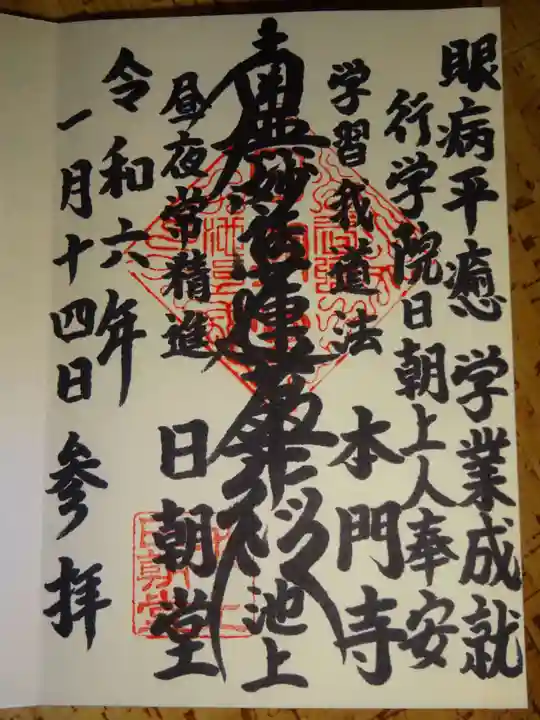 眼病平癒 学業成就
行学院日朝上人奉安
学習我道法
本門寺
南無妙法蓮華経
池上
昼夜常精進
日朝堂
令和六年
一月十四日 参拝